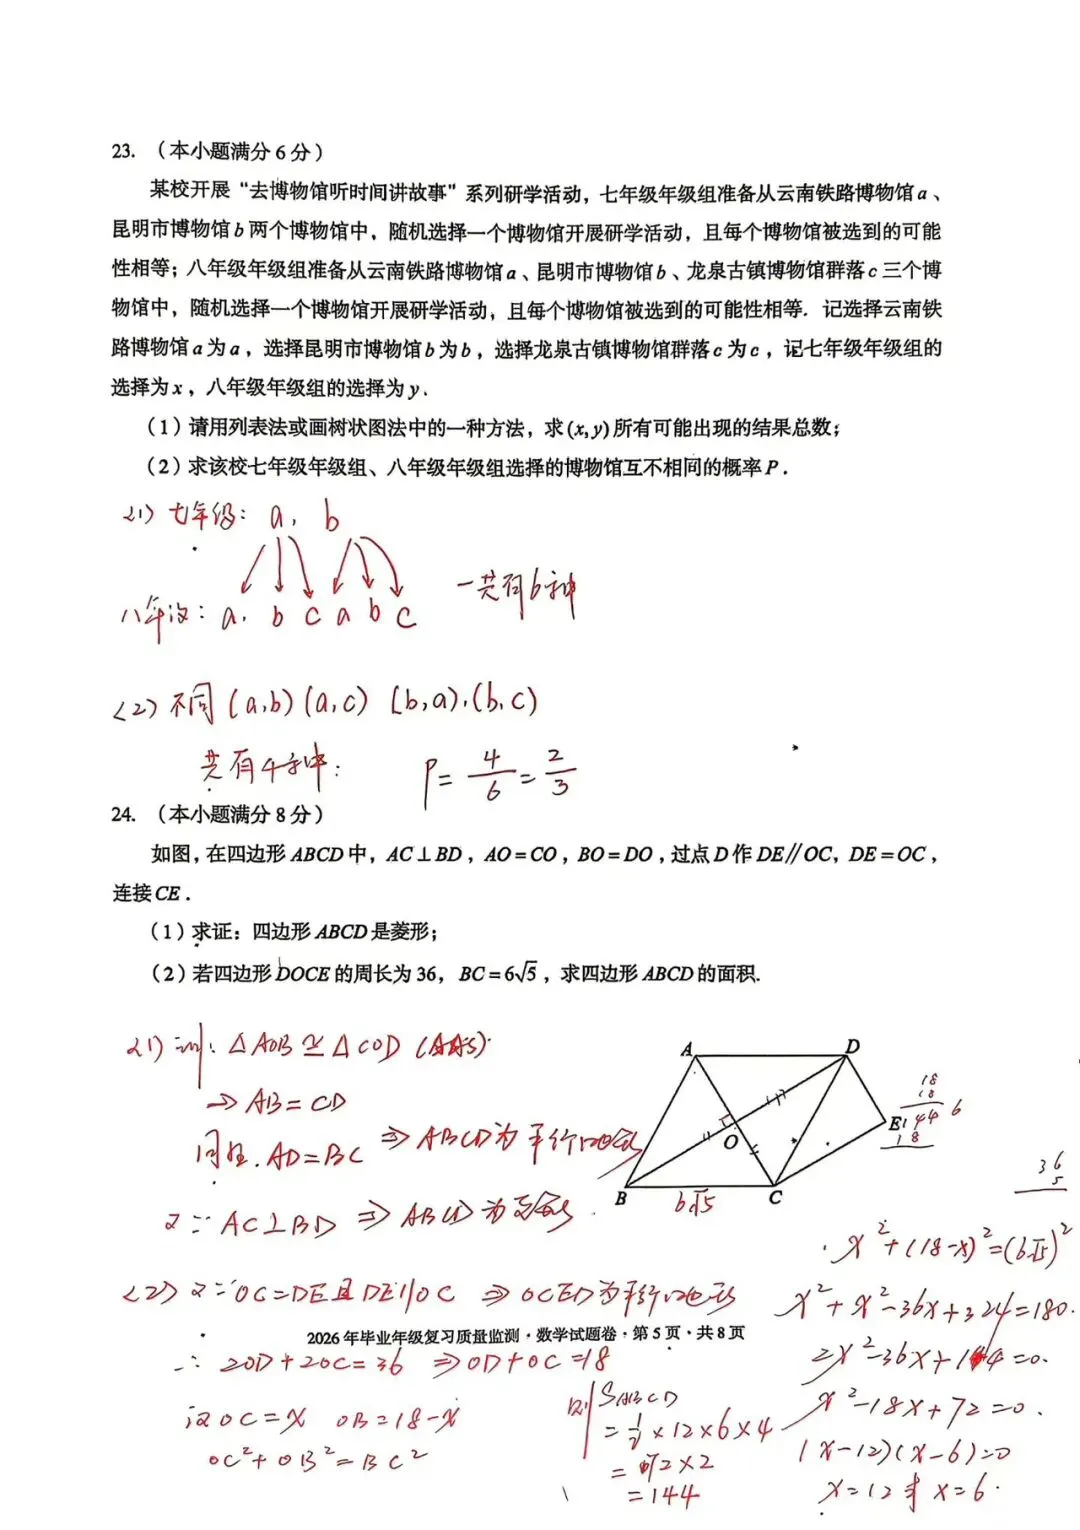 23. （本小题满分 6 分）
某校开展“去博物馆听时间讲故事”系列研学活动，七年级年级组准备从云南铁路博物馆 a 、
昆明市博物馆 b 两个博物馆中，随机选择一个博物馆开展研学活动，且每个博物馆被选到的可能
性相等；八年级年级组准备从云南铁路博物馆 a 、昆明市博物馆 b 、龙泉古镇博物馆群落 c 三个博
物馆中，随机选择一个博物馆开展研学活动，且每个博物馆被选到的可能性相等．记选择云南铁
路博物馆 a 为 a ，选择昆明市博物馆 b 为 b ，选择龙泉古镇博物馆群落 c 为 c ，记七年级年级组的
选择为 x ，八年级年级组的选择为 y .
（1）请用列表法或画树状图法中的一种方法，求 (x, y) 所有可能出现的结果总数；
（2）求该校七年级年级组、八年级年级组选择的博物馆互不相同的概率 P .
(1) 七年级: a, b
一共有6种
八年级: a, b c a b c
(2) 不同 (a,b) (a,c) (b,a), (b,c)
共有4种:
P = 4/6 = 2/3
24. （本小题满分 8 分）
如图，在四边形 ABCD 中，AC⊥BD，AO=CO，BO=DO，过点 D 作 DE∥OC，DE=OC，
连接 CE .
（1）求证：四边形 ABCD 是菱形；
（2）若四边形 DOCE 的周长为 36，BC=6√5，求四边形 ABCD 的面积.
(1) 证: △AOB≅△COD (AAS).
⇒ AB=CD
同理. AD=BC ⇒ ABCD为平行四边形
又∵ AC⊥BD ⇒ ABCD为菱形.
A
D
E
O
B
C
6√5
18
18
144
18
6
36
5
(2) 又∵OC=DE且DE//OC ⇒ OCED为平行四边形
2026 年毕业年级复习质量监测·数学试题卷·第 5 页·共 8 页
∴ 2OD+2OC=36 ⇒OD+OC=18
设OC=x OB=18-x
OC²+OB²=BC²
x²+(18-x)²=(6√5)²
x²+x²-36x+324=180.
2x²-36x+144=0.
x²-18x+72=0.
(x-12)(x-6)=0
x=12或x=6.
则 SABCD
=1/2×12×6×4
=72×2
=144